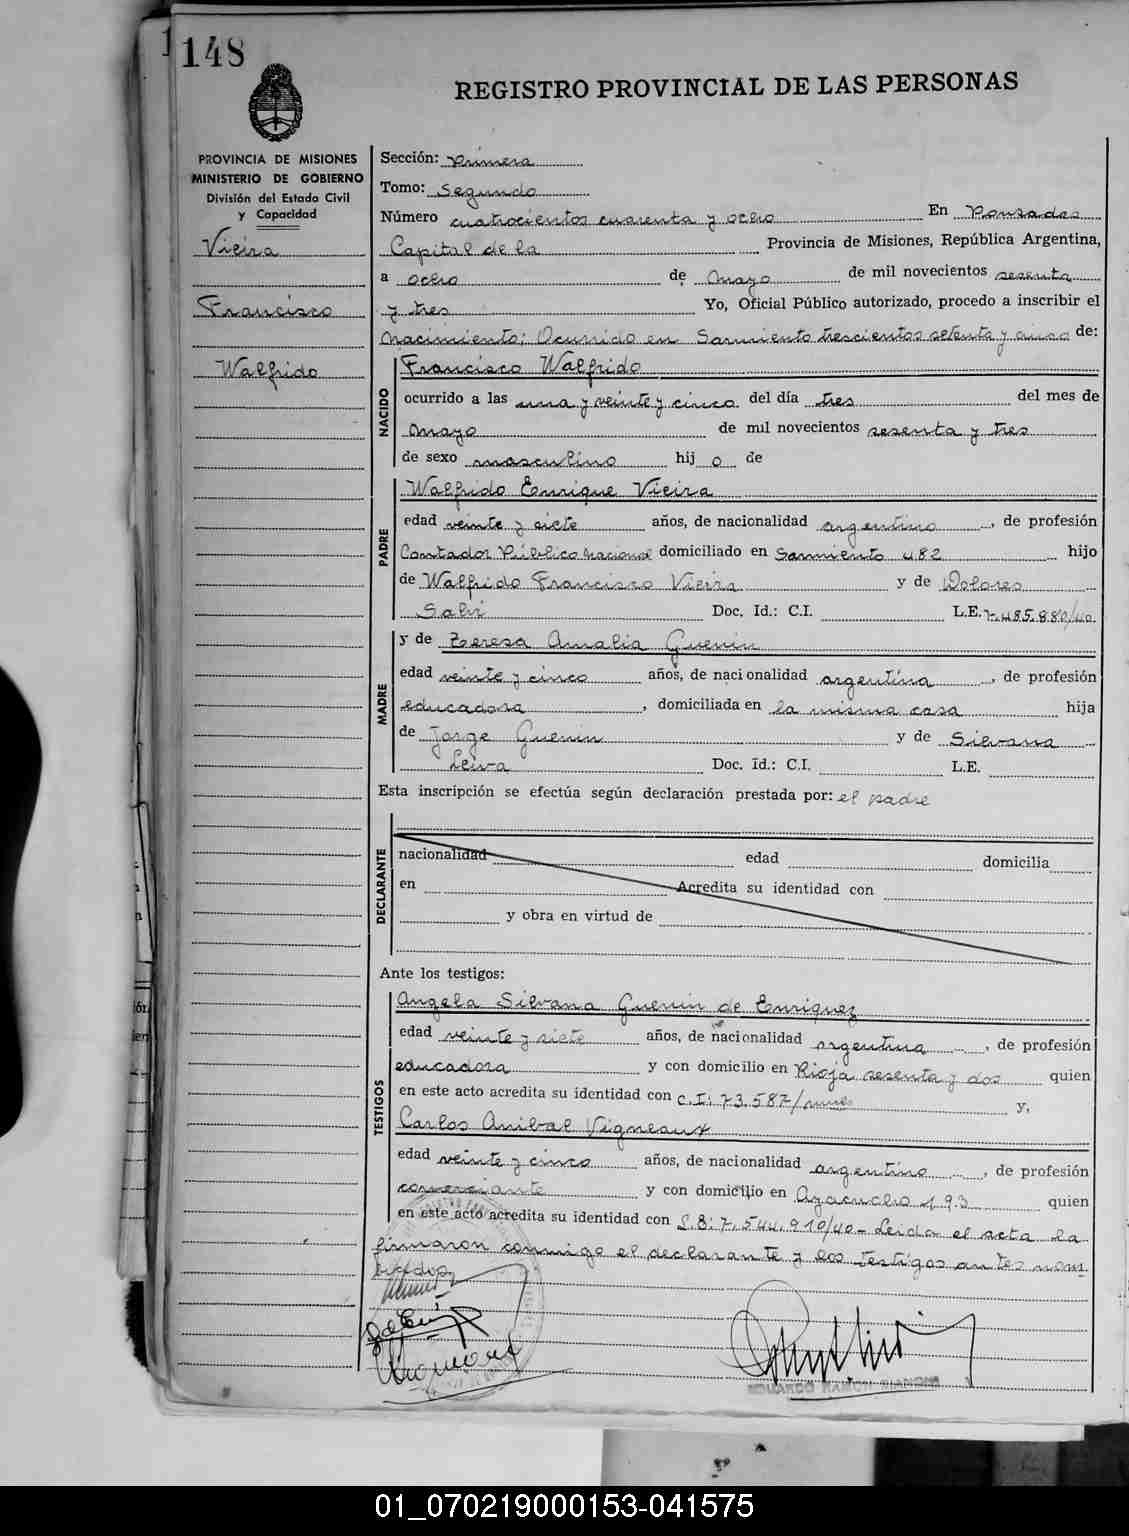 148
REGISTRO PROVINCIAL DE LAS PERSONAS
PROVINCIA DE MISIONES
MINISTERIO DE GOBIERNO
División del Estado Civil
y Capacidad
Vieira
Francisco
Walfrido
Sección: Primera
Tomo: Segundo
Número cuatrocientos cuarenta y ocho En Posadas
Capital de la Provincia de Misiones, República Argentina,
a ocho de mayo de mil novecientos sesenta
y tres Yo, Oficial Público autorizado, procedo a inscribir el
nacimiento; Ocurrido en Sarmiento trescientos setenta y cinco de:
NACIDO
Francisco Walfrido
ocurrido a las una y veinte y cinco del día tres del mes de
mayo de mil novecientos sesenta y tres
de sexo masculino hij o de
PADRE
Walfrido Enrique Vieira
edad veinte y siete años, de nacionalidad argentino, de profesión
Contador Público Nacional domiciliado en Sarmiento 482 hijo
de Walfrido Francisco Vieira y de Dolores
Doc. Id.: C.I. L.E. 7.485.880/40
MADRE
y de Teresa Amalia Guenin
edad veinte y cinco años, de nacionalidad argentina, de profesión
educadora, domiciliada en la misma casa hija
de Jorge Guenin y de Silvana
Leiva Doc. Id.: C.I. L.E.
Esta inscripción se efectúa según declaración prestada por: el padre
DECLARANTE
nacionalidad edad domicilia
en Acredita su identidad con
y obra en virtud de
Ante los testigos:
TESTIGOS
Angela Silvana Guenin de Enriquez
edad veinte y siete años, de nacionalidad argentina, de profesión
educadora y con domicilio en Rioja sesenta y dos quien
en este acto acredita su identidad con C.I: 73.587/ y,
Carlos Anibal Vigneaux
edad veinte y cinco años, de nacionalidad argentino, de profesión
comerciante y con domicilio en Ayacucho 193 quien
en este acto acredita su identidad con 7.544.910/40- Leida el acta la
firmaron conmigo el declarante y los testigos antes nom
brados
01_070219000153-041575